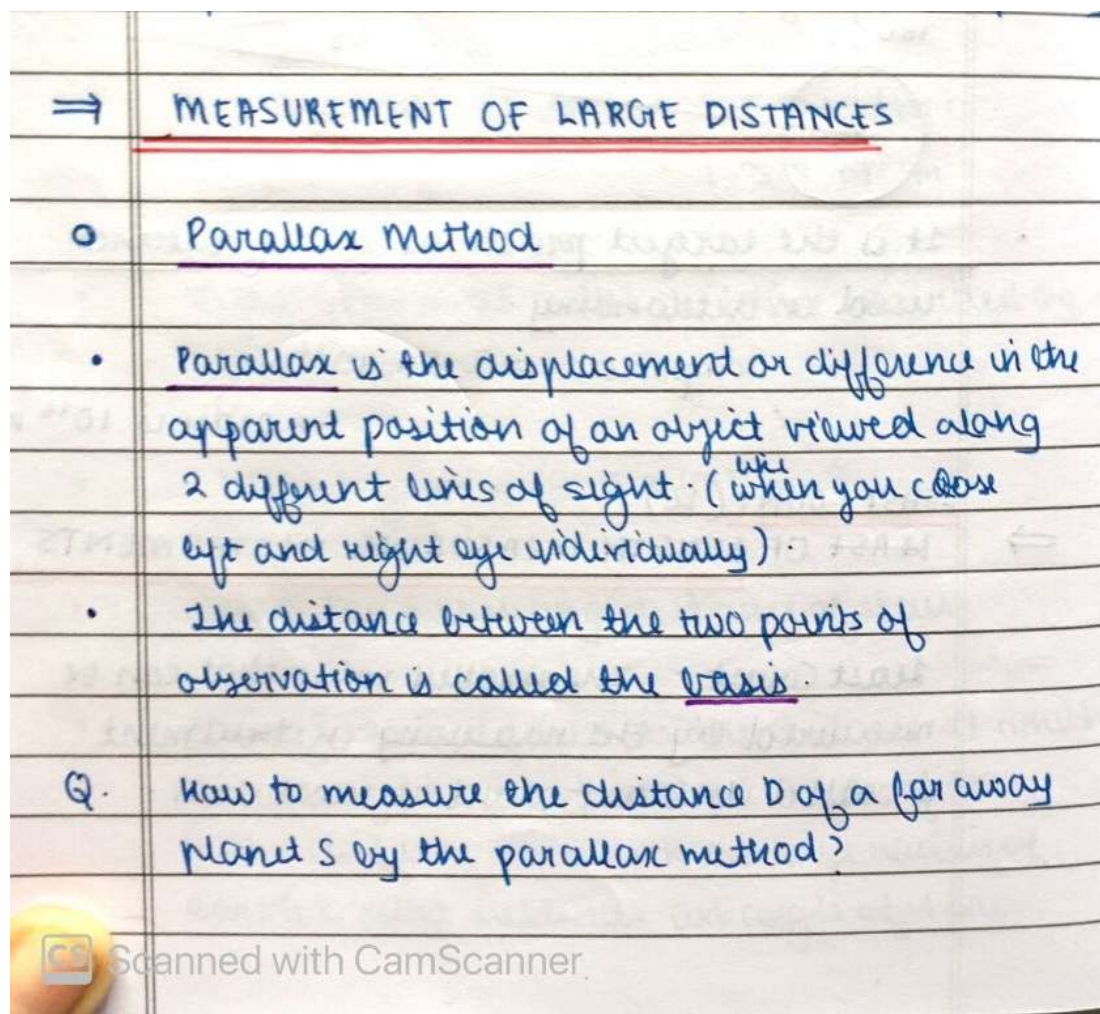 ⇒ MEASUREMENT OF LARGE DISTANCES
o Parallax Method
• Parallax is the displacement or difference in the
apparent position of an object viewed along
2 different lines of sight. (like when you close
left and right eye individually).
• The distance between the two points of
observation is called the basis.
Q. How to measure the distance D of a far away
planet S by the parallax method?
CS Scanned with CamScanner